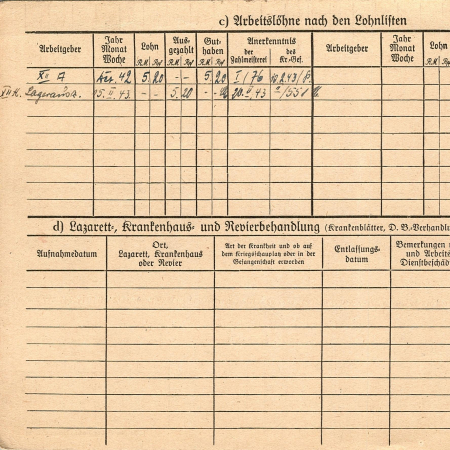 c) Arbeitslöhne nach den Lohnlisten
Arbeitgeber Jahr Monat Woche Lohn R.M. Rpf Ausgezahlt R.M. Rpf Guthaben R.M. Rpf Anerkenntnis der Zahlmeisterei des Kr.-Gef. Arbeitgeber Jahr Monat Woche Lohn R.M. Rpf
XII A 42 5.20 - - 5.20 I/76
XII A. 5. II. 43. - - 5.20 20.II.43
d) Lazarett-, Krankenhaus- und Revierbehandlung (Krankenblätter, D. B.-Verhandlu
Aufnahmedatum Ort, Lazarett, Krankenhaus oder Revier Art der Krankheit und ob auf dem Kriegsschauplatz oder in der Gefangenschaft erworben Entlassungsdatum Bemerkungen und Arbeits Dienstbeschäd